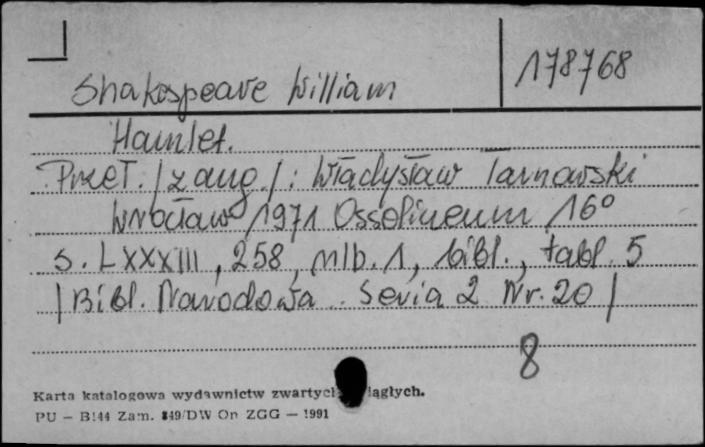 178768
Shakespeare William
Hamlet.
Przeł. /z ang./: Władysław Tarnowski
Wrocław 1971 Ossolineum 16°
s. LXXXIII, 258, nlb. 1, bibl., tabl. 5
/Bibl. Narodowa. Seria 2 Nr. 20/
8
Karta katalogowa wydawnictw zwartych ciągłych.
PU — B144 Zam. 849/DW Op ZGG — 1991